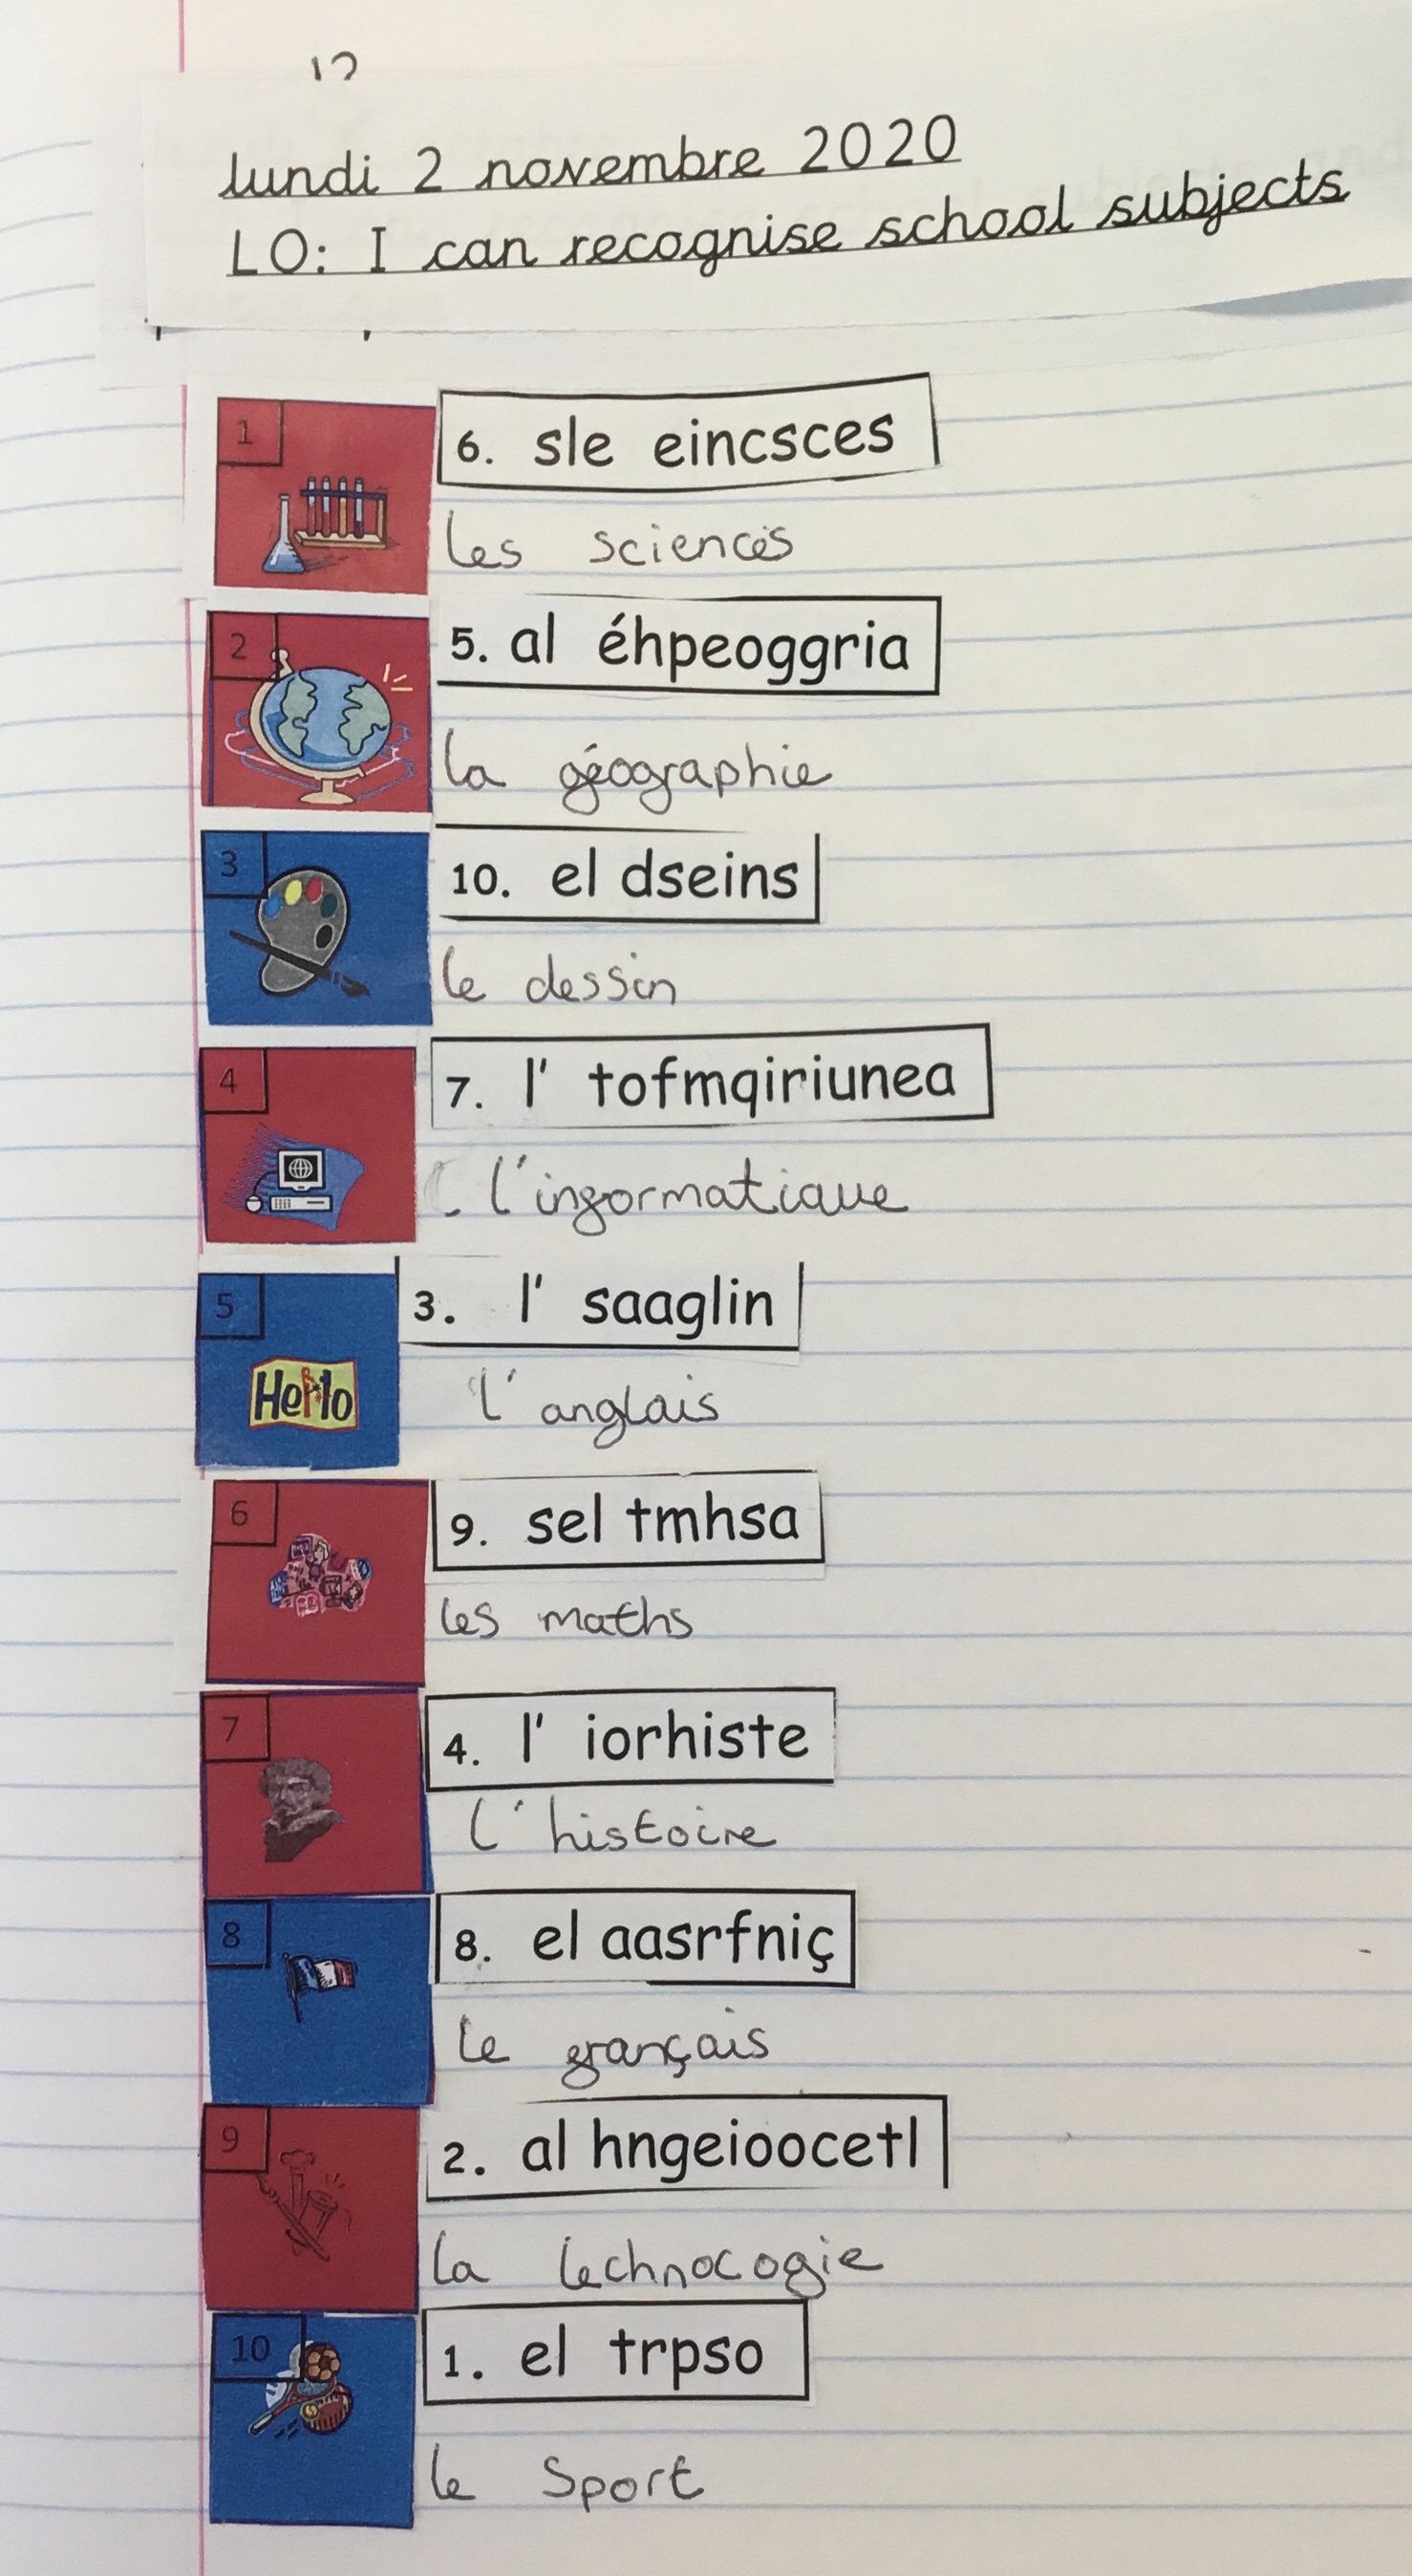 lundi 2 novembre 2020
LO: I can recognise school subjects
1
6. sle eincsces
les sciences
2
5. al éhpeoggria
la géographie
3
10. el dseins
le dessin
4
7. l' tofmqiriunea
l'informatique
5
Hello
3. l' saaglin
l'anglais
6
9. sel tmhsa
les maths
7
4. l' iorhiste
l'histoire
8
8. el aasrfniç
le français
9
2. al hngeioocetl
la technologie
10
1. el trpso
le Sport